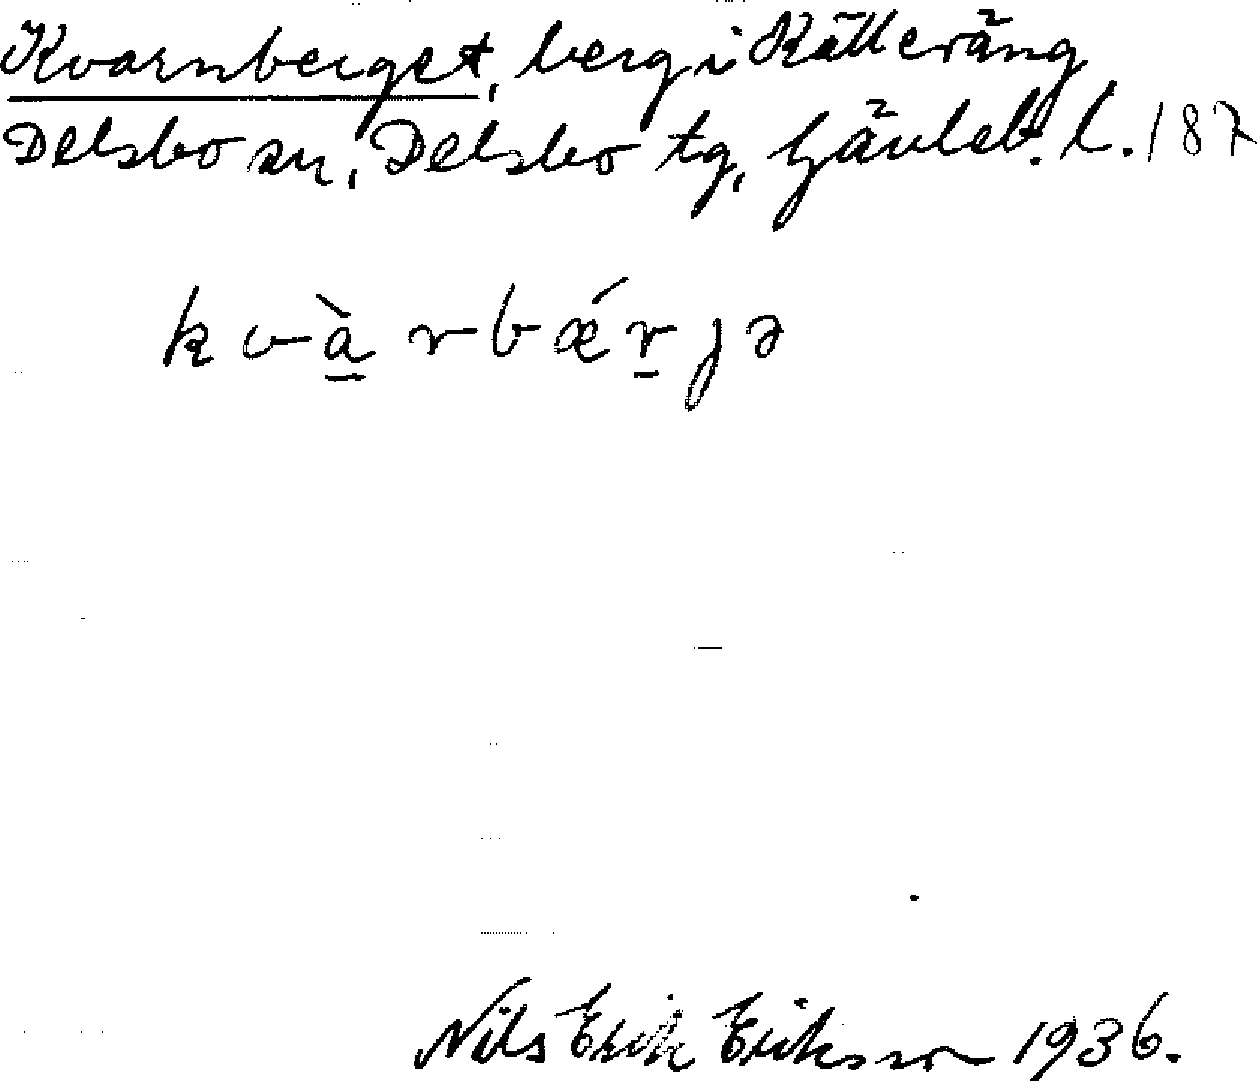 Kvarnberget, berg i Källeräng
Delsbo sn, Delsbo tg, Gävleb. l. 187
kvàrbǽrjə
Nils Erik Eriksson 1936.